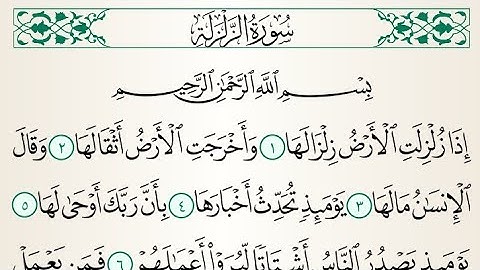 سُورَةُ الزَّلْزَلَةِ
بِسْمِ اللَّهِ الرَّحْمَٰنِ الرَّحِيمِ
إِذَا زُلْزِلَتِ ٱلْأَرْضُ زِلْزَالَهَا ١ وَأَخْرَجَتِ ٱلْأَرْضُ أَثْقَالَهَا ٢ وَقَالَ
ٱلْإِنسَٰنُ مَا لَهَا ٣ يَوْمَئِذٍ تُحَدِّثُ أَخْبَارَهَا ٤ بِأَنَّ رَبَّكَ أَوْحَىٰ لَهَا ٥
يَوْمَئِذٍ يَصْدُرُ ٱلنَّاسُ أَشْتَاتًا لِّيُرَوْا۟ أَعْمَٰلَهُمْ ٦ فَمَن يَعْمَلْ